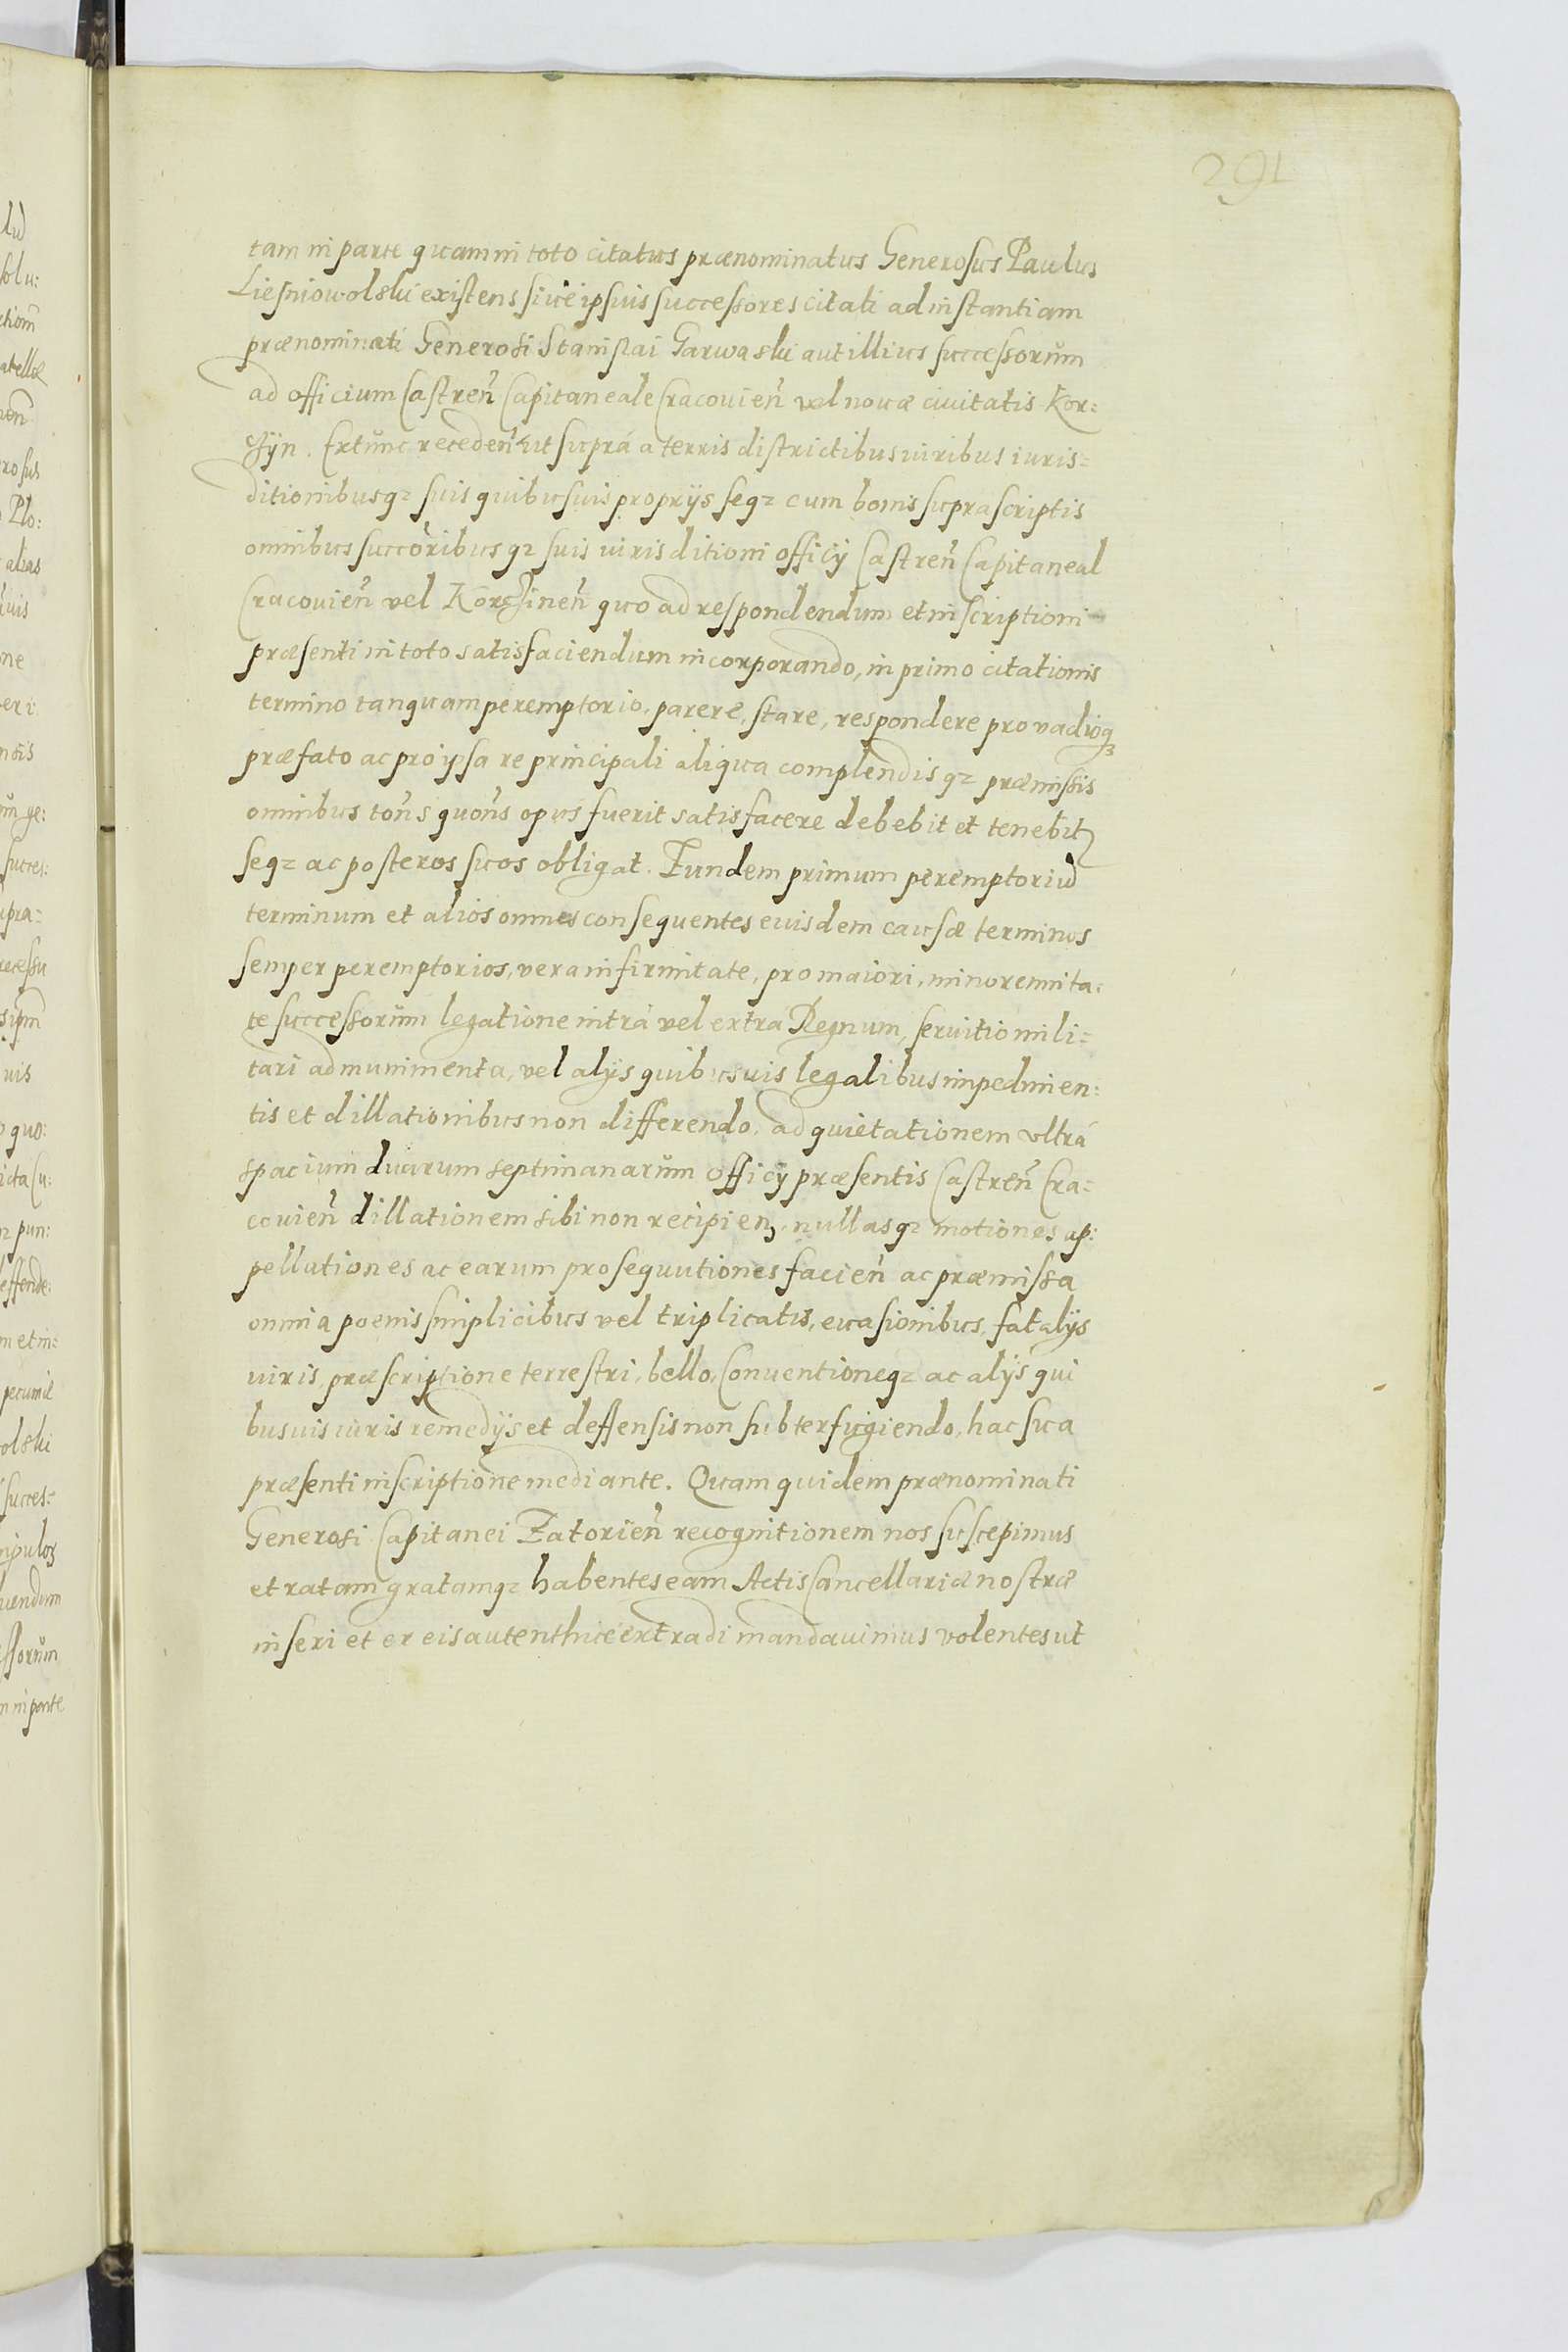 291
tam in parte quam in toto citatus prænominatus Generosus Paulus
Liesniowolski existens siue ipsius successores citati ad instantiam
prænominati Generosi Stanislai Garwaski aut illius successorum
ad officium Castreñ Capitaneale Cracouieñ vel nouæ ciuitatis Kor:
czÿn. Extunc recedeñ ut suprá a terris districtibus iuribus iuris=
ditionibusq; suis quibusuis proprÿs seq; cum bonis suprascriptis
omnibus succoribusq; suis iurisditioni officÿ Castreñ Capitaneal
Cracouieñ vel Korczineñ quo ad respondendum et inscriptioni
præsenti in toto satisfaciendum incorporando, in primo citationis
termino tanquam peremptorio, parere, stare, respondere pro vadioq;
præfato ac pro ipsa re principali aliqua complendisq; præmissis
omnibus toñs quoñs opus fuerit satisfacere debebit et tenebit
seq; ac posteros suos obligat. Eundem primum peremptoriũ
terminum et alios omnes consequentes eiusdem causæ terminos
semper peremptorios, vera infirmitate, pro maiori, minorennita:
te successorum legatione intrá vel extra Regnum, seruitio mili=
tari ad munimenta, vel alÿs quibusuis legalibus impedimen:
tis et dillationibus non differendo, ad quietationem vltrá
spacium duarum septimanarum officÿ præsentis Castreñ Cra=
couieñ dillationem sibi non recipieñ, nullasq; motiones ap:
pellationes ac earum prosequutiones facieñ ac præmissa
omnia poenis simplicibus vel triplicatis, euasionibus, fatalÿs
iuris, præscriptione terrestri, bello, Conuentioneq; ac alÿs qui
busuis iuris remedÿs et deffensis non subterfugiendo, hac sua
præsenti inscriptione mediante. Quam quidem prænominati
Generosi Capitanei Zatorieñ recognitionem nos suscepimus
et ratam gratamq; habentes eam Actis Cancellariæ nostræ
inseri et ex eis autenthice extradi mandauimus volentes ut